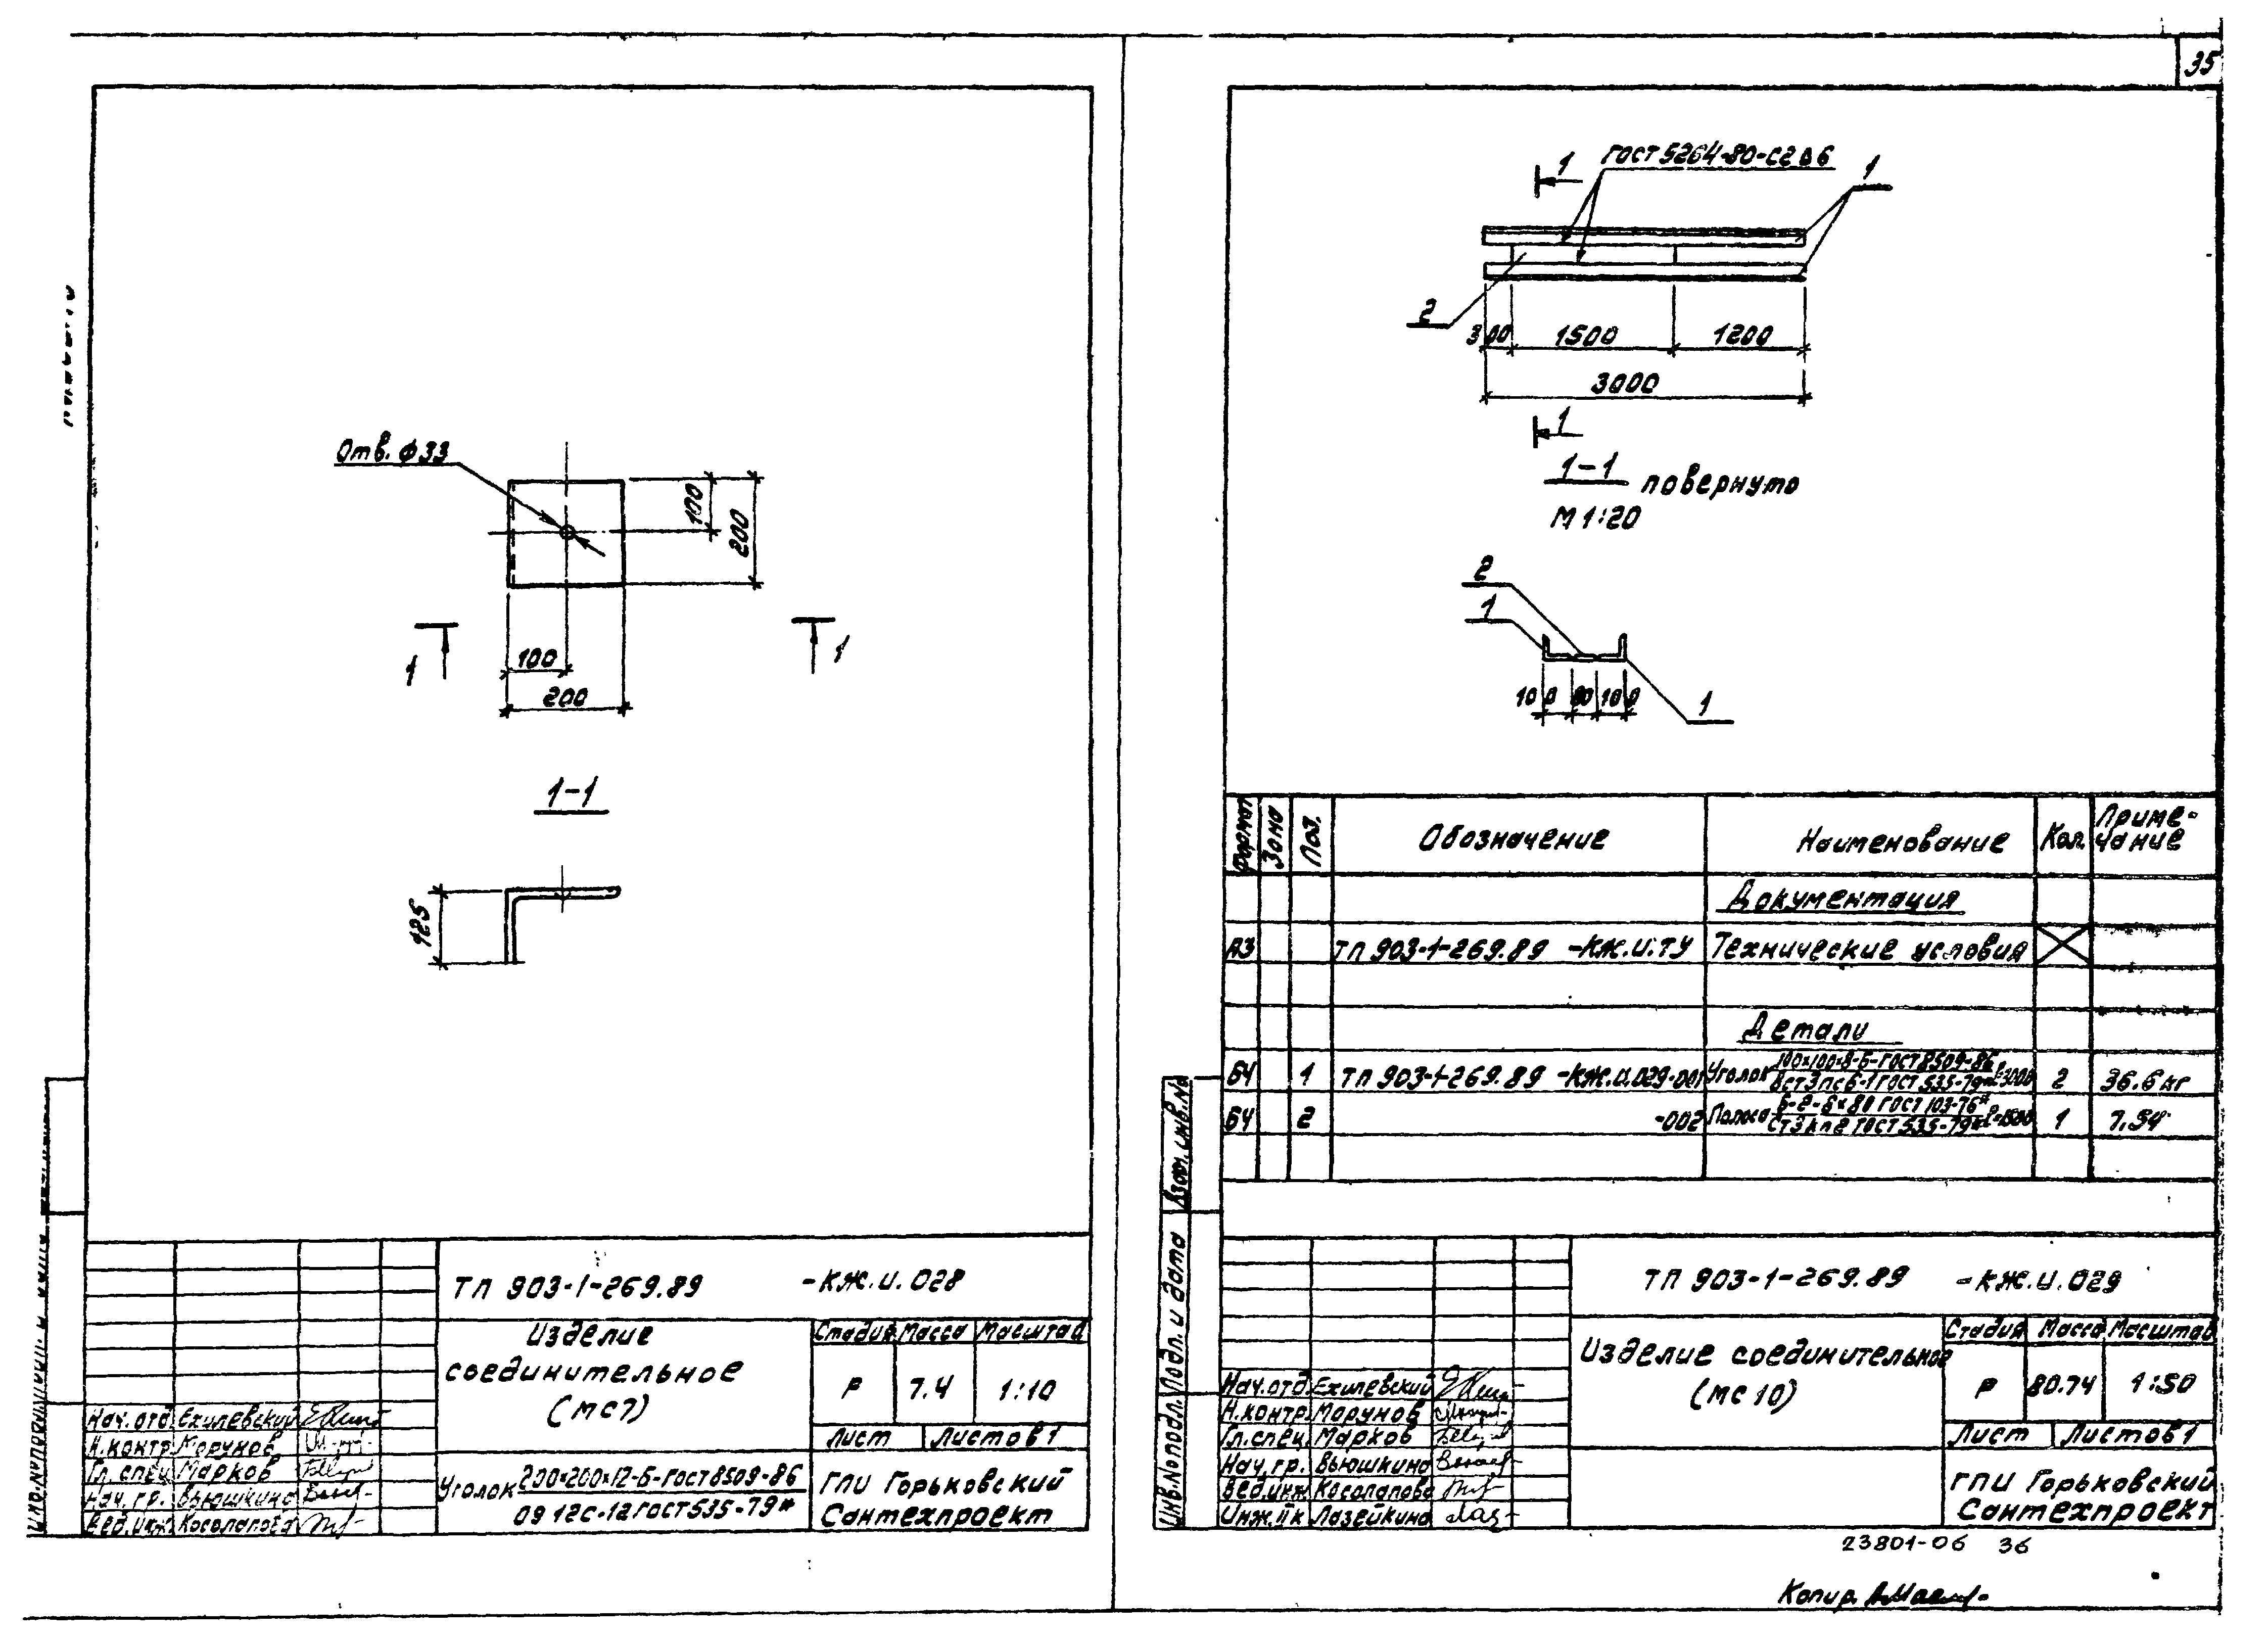 35
Отв. ф33
100
200
1
1
100
200
1-1
125
ТП 903-1-269.89 -КЖ.И.028
Изделие
соединительное
(МС7)
Стадия Масса Масштаб
Р 7.4 1:10
Лист Листов 1
Нач.отд. Ехилевский
Н.контр. Морунов
Гл.спец. Марков
Нач.гр. Вьюшкина
Вед.инж. Косолапова
Уголок 200×200×12-Б-ГОСТ 8509-86
09Г2С-12 ГОСТ 535-79*
ГПИ Горьковский
Сантехпроект
1
ГОСТ 5264-80-С2 Δ6
1
2
300 1500 1200
3000
1
1-1 повернуто
М 1:20
2
1
100 80 100
1
Формат Зона Поз. Обозначение Наименование Кол. Приме-
чание
Документация
А3 ТП 903-1-269.89 -КЖ.И.ТУ Технические условия
Детали
БЧ 1 ТП 903-1-269.89 -КЖ.И.029-001 Уголок 100×100×8-Б-ГОСТ 8509-86
ВСт3пс6-1 ГОСТ 535-79* ℓ=3000 2 36.6 кг
БЧ 2 -002 Полоса Б-2-6×80 ГОСТ 103-76*
Ст3кп2 ГОСТ 535-79* ℓ=1500 1 7.54
Взам. инв. №
Подп. и дата
Инв. № подл.
ТП 903-1-269.89 -КЖ.И.029
Изделие соединительное
(МС 10)
Стадия Масса Масштаб
Р 80.74 1:50
Лист Листов 1
Нач.отд. Ехилевский
Н.контр. Морунов
Гл.спец. Марков
Нач.гр. Вьюшкина
Вед.инж. Косолапова
Инж. II к Лазейкина
ГПИ Горьковский
Сантехпроект
23801-06 36
Копир.